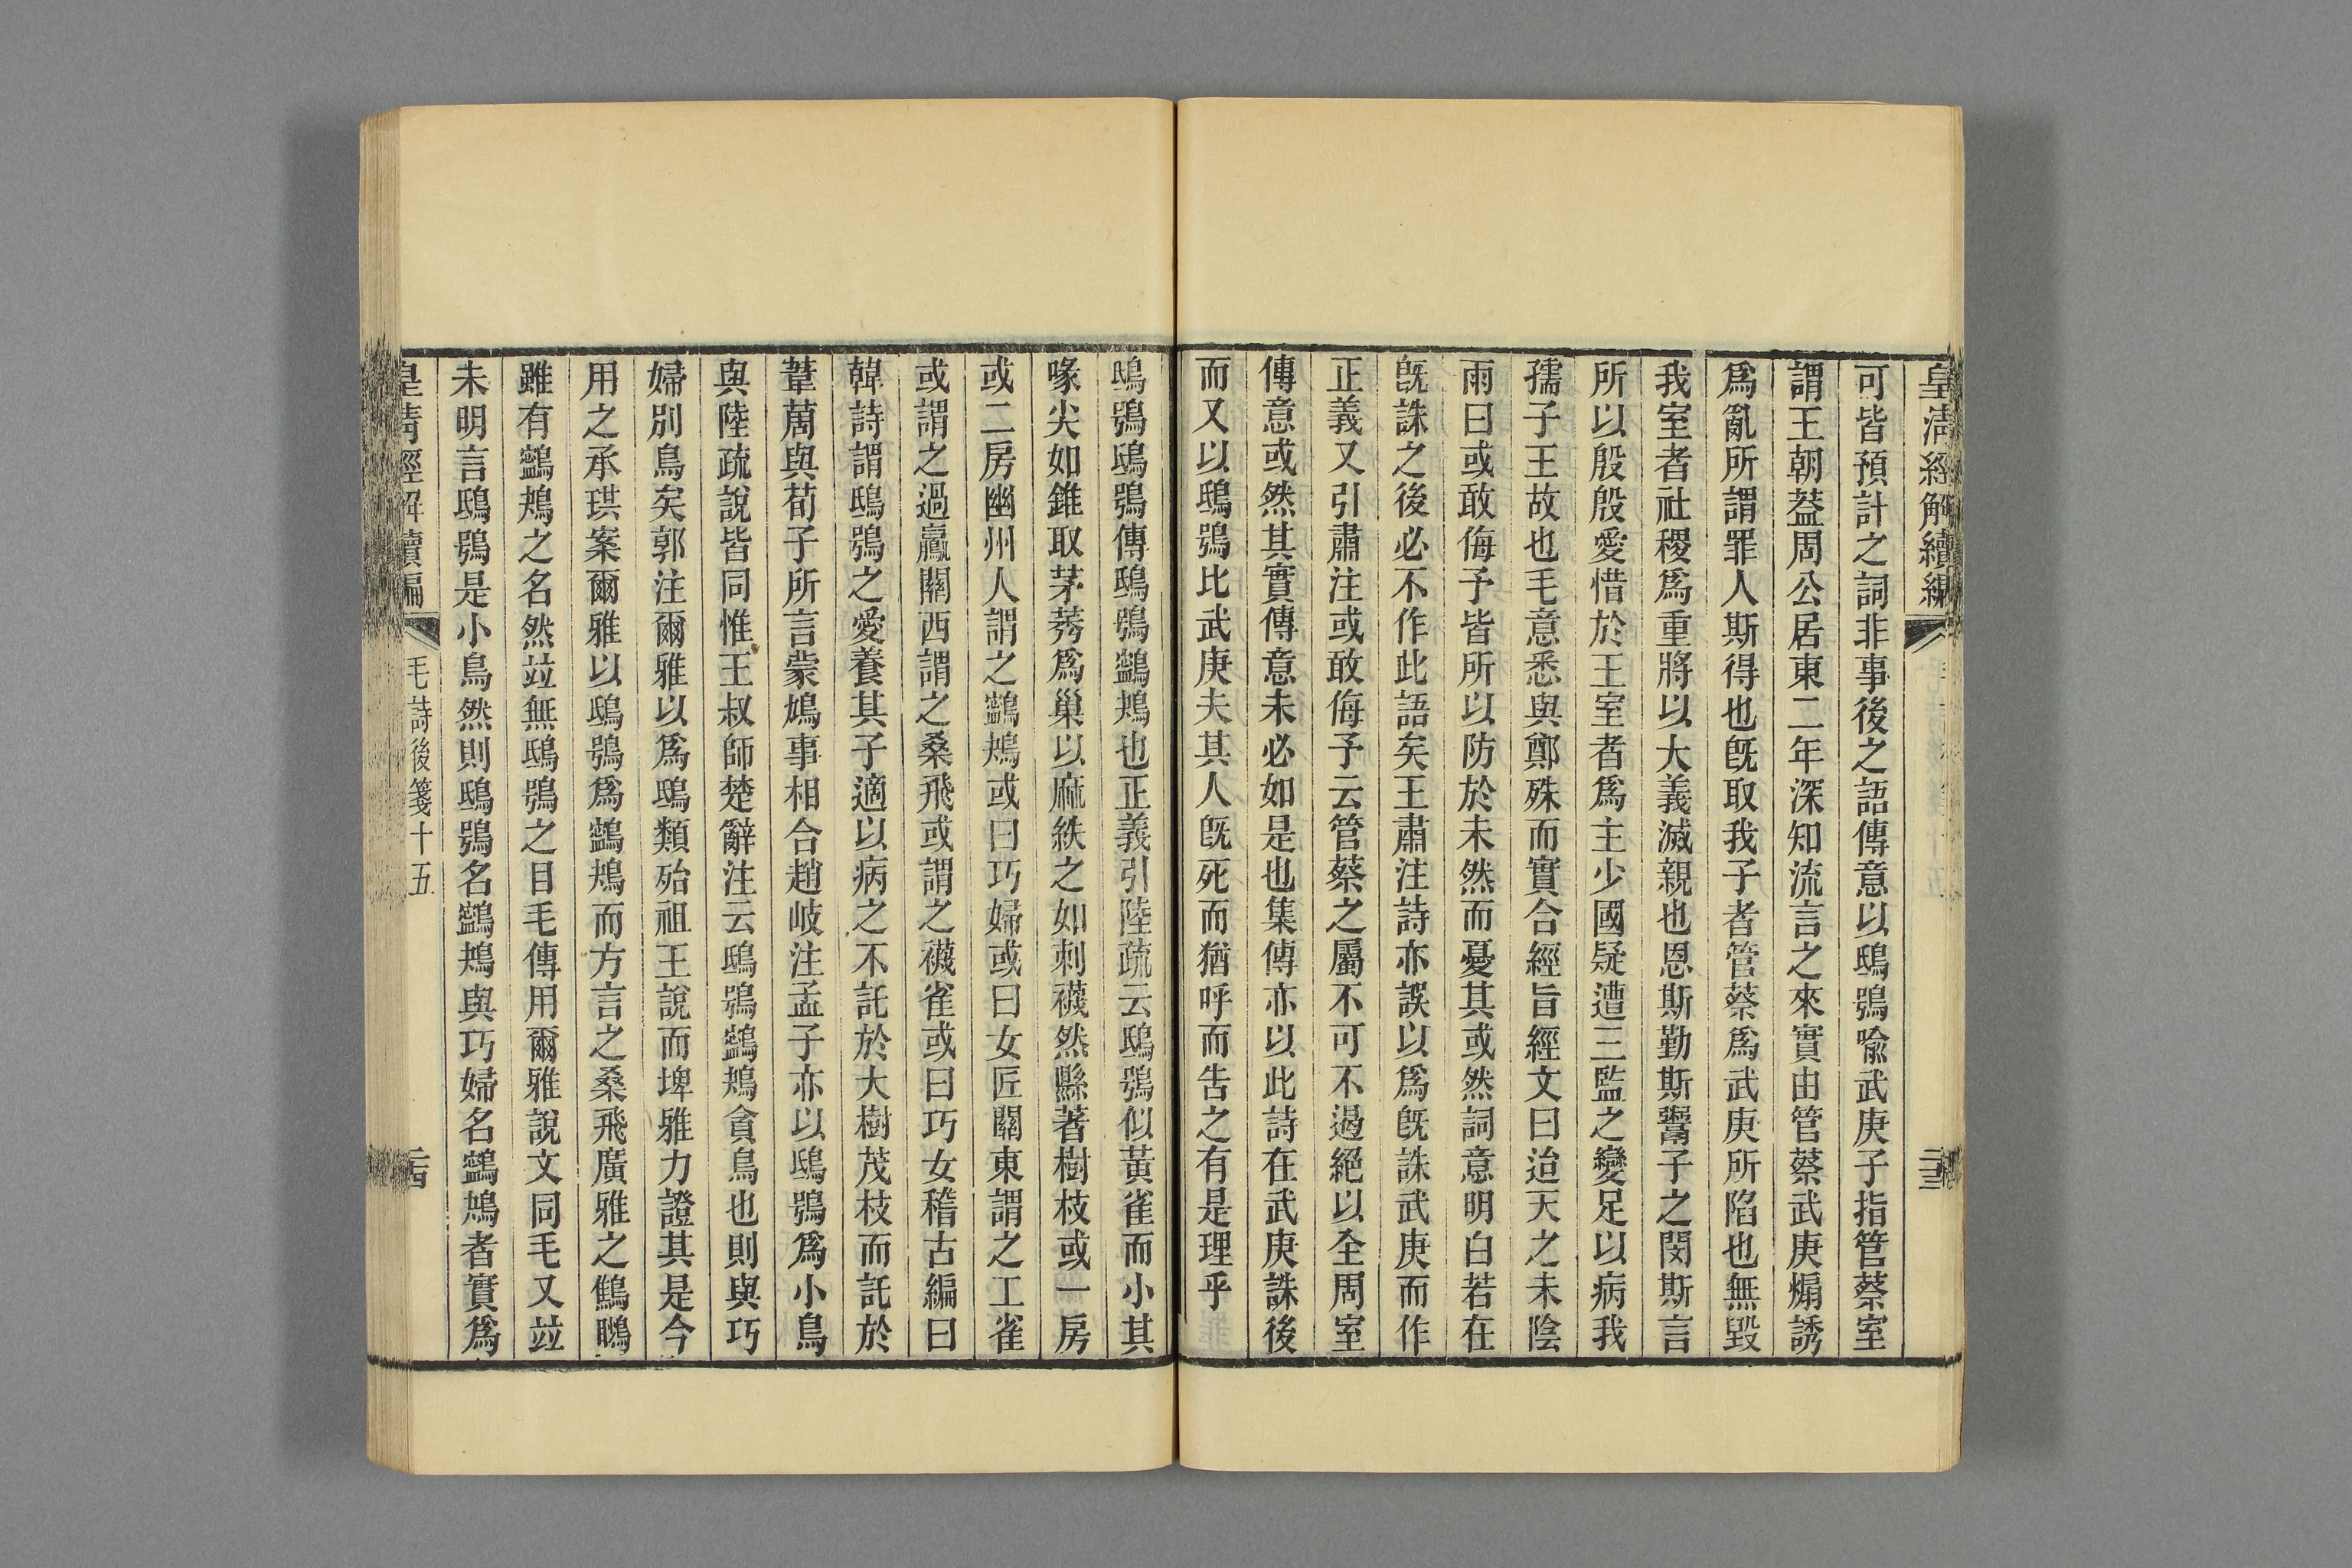 皇清經解續編
二十三
可皆預計之詞非事後之語傳意以鴟鴞喻武庚子指管蔡室
謂王朝葢周公居東二年深知流言之來實由管蔡武庚煽誘
爲亂所謂罪人斯得也旣取我子者管蔡爲武庚所陷也無毀
我室者社稷爲重將以大義滅親也恩斯勤斯鬻子之閔斯言
所以殷殷愛惜於王室者爲主少國疑遭三監之變足以病我
孺子王故也毛意悉與鄭殊而實合經旨經文曰迨天之未陰
雨曰或敢侮予皆所以防於未然而憂其或然詞意明白若在
旣誅之後必不作此語矣王肅注詩亦誤以爲旣誅武庚而作
正義又引肅注或敢侮予云管蔡之屬不可不遏絕以全周室
傳意或然其實傳意未必如是也集傳亦以此詩在武庚誅後
而又以鴟鴞比武庚夫其人旣死而猶呼而告之有是理乎
鴟鴞鴟鴞傳鴟鴞鸋鴂也正義引陸疏云鴟鴞似黃雀而小其
喙尖如錐取茅莠爲巢以麻紩之如刺襪然縣著樹枝或一房
或二房幽州人謂之鸋鴂或曰巧婦或曰女匠關東謂之工雀
或謂之過鸁關西謂之桑飛或謂之襪雀或曰巧女稽古編曰
韓詩謂鴟鴞之愛養其子適以病之不託於大樹茂枝而託於
葦䓕與荀子所言蒙鳩事相合趙岐注孟子亦以鴟鴞爲小鳥
與陸疏說皆同惟王叔師楚辭注云鴟鴞鸋鴂貪鳥也則與巧
婦別鳥矣郭注爾雅以爲鴟類殆祖王說而埤雅力證其是今
用之承珙案爾雅以鴟鴞爲鸋鴂而方言之桑飛廣雅之鷦䳟
雖有鸋鴂之名然竝無鴟鴞之目毛傳用爾雅說文同毛又竝
未明言鴟鴞是小鳥然則鴟鴞名鸋鴂與巧婦名鸋鴂者實爲
皇清經解續編
毛詩後箋十五
二十四